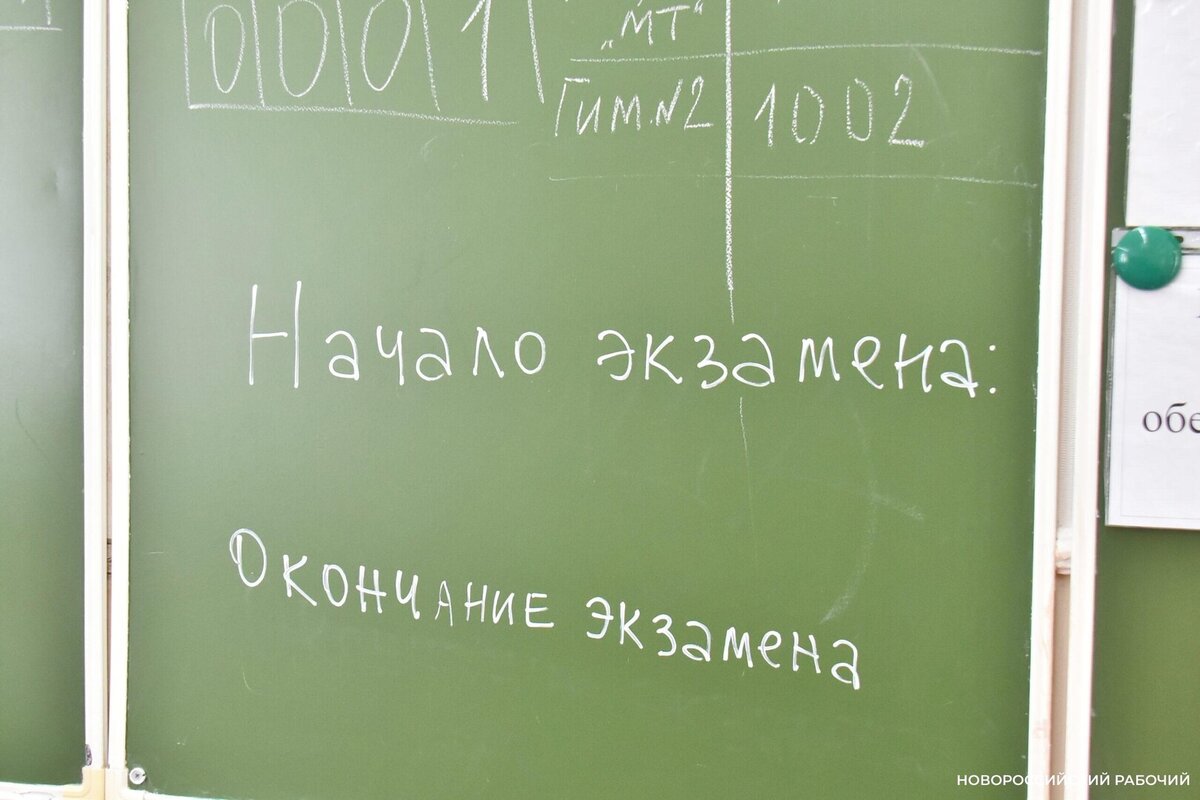 0001
„МТ“
Гим.№2 1002
Начало экзамена:
Окончание экзамена
обе
НОВОРОССИЙСКИЙ РАБОЧИЙ